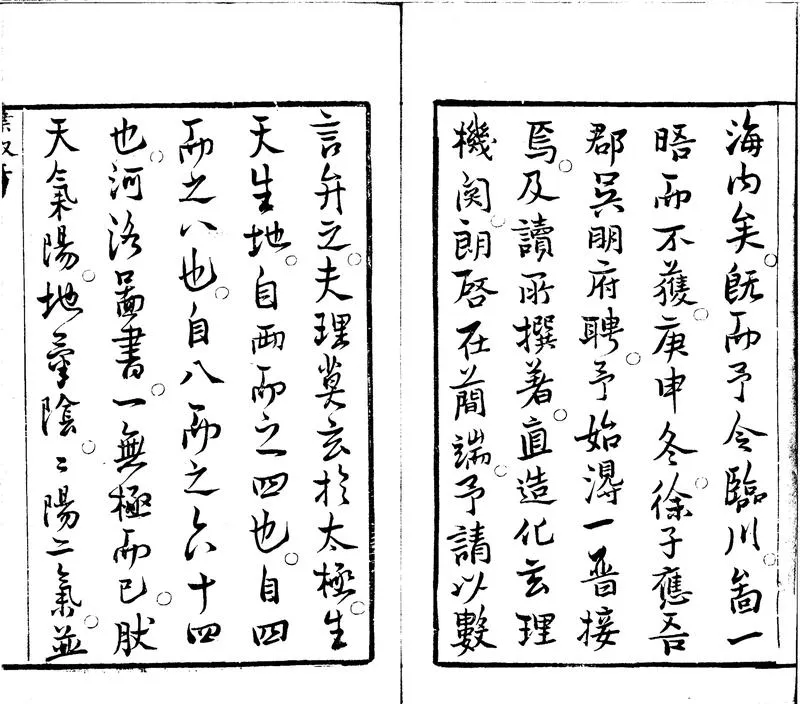 海内矣。旣而予令臨川。啚一
晤而不獲。庚申冬。徐子應吾
郡吳明府聘。予始得一晉接
焉。及讀所撰著。直造化玄理
機関。朗啓在蕳端。予請以數
言弁之。夫理莫玄於太極。生
天生地。自兩而之四也。自四
而之八也。自八而之六十四
也。河洛啚書。一無極而已。肰
天氣陽。地氣陰。二陽二氣。並